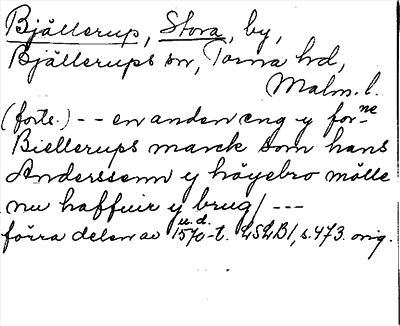 Bjällerup, Stora, by,
Bjällerups sn, Torna hd,
Malm. l.
(forts.) -- en anden eng y forne
Biellerups marck som hans
Anderssenn y höyebro mölle
nu haffuir y brug / ---
förra delen av 1570-t. u.d. LSLB1, s. 473. orig.